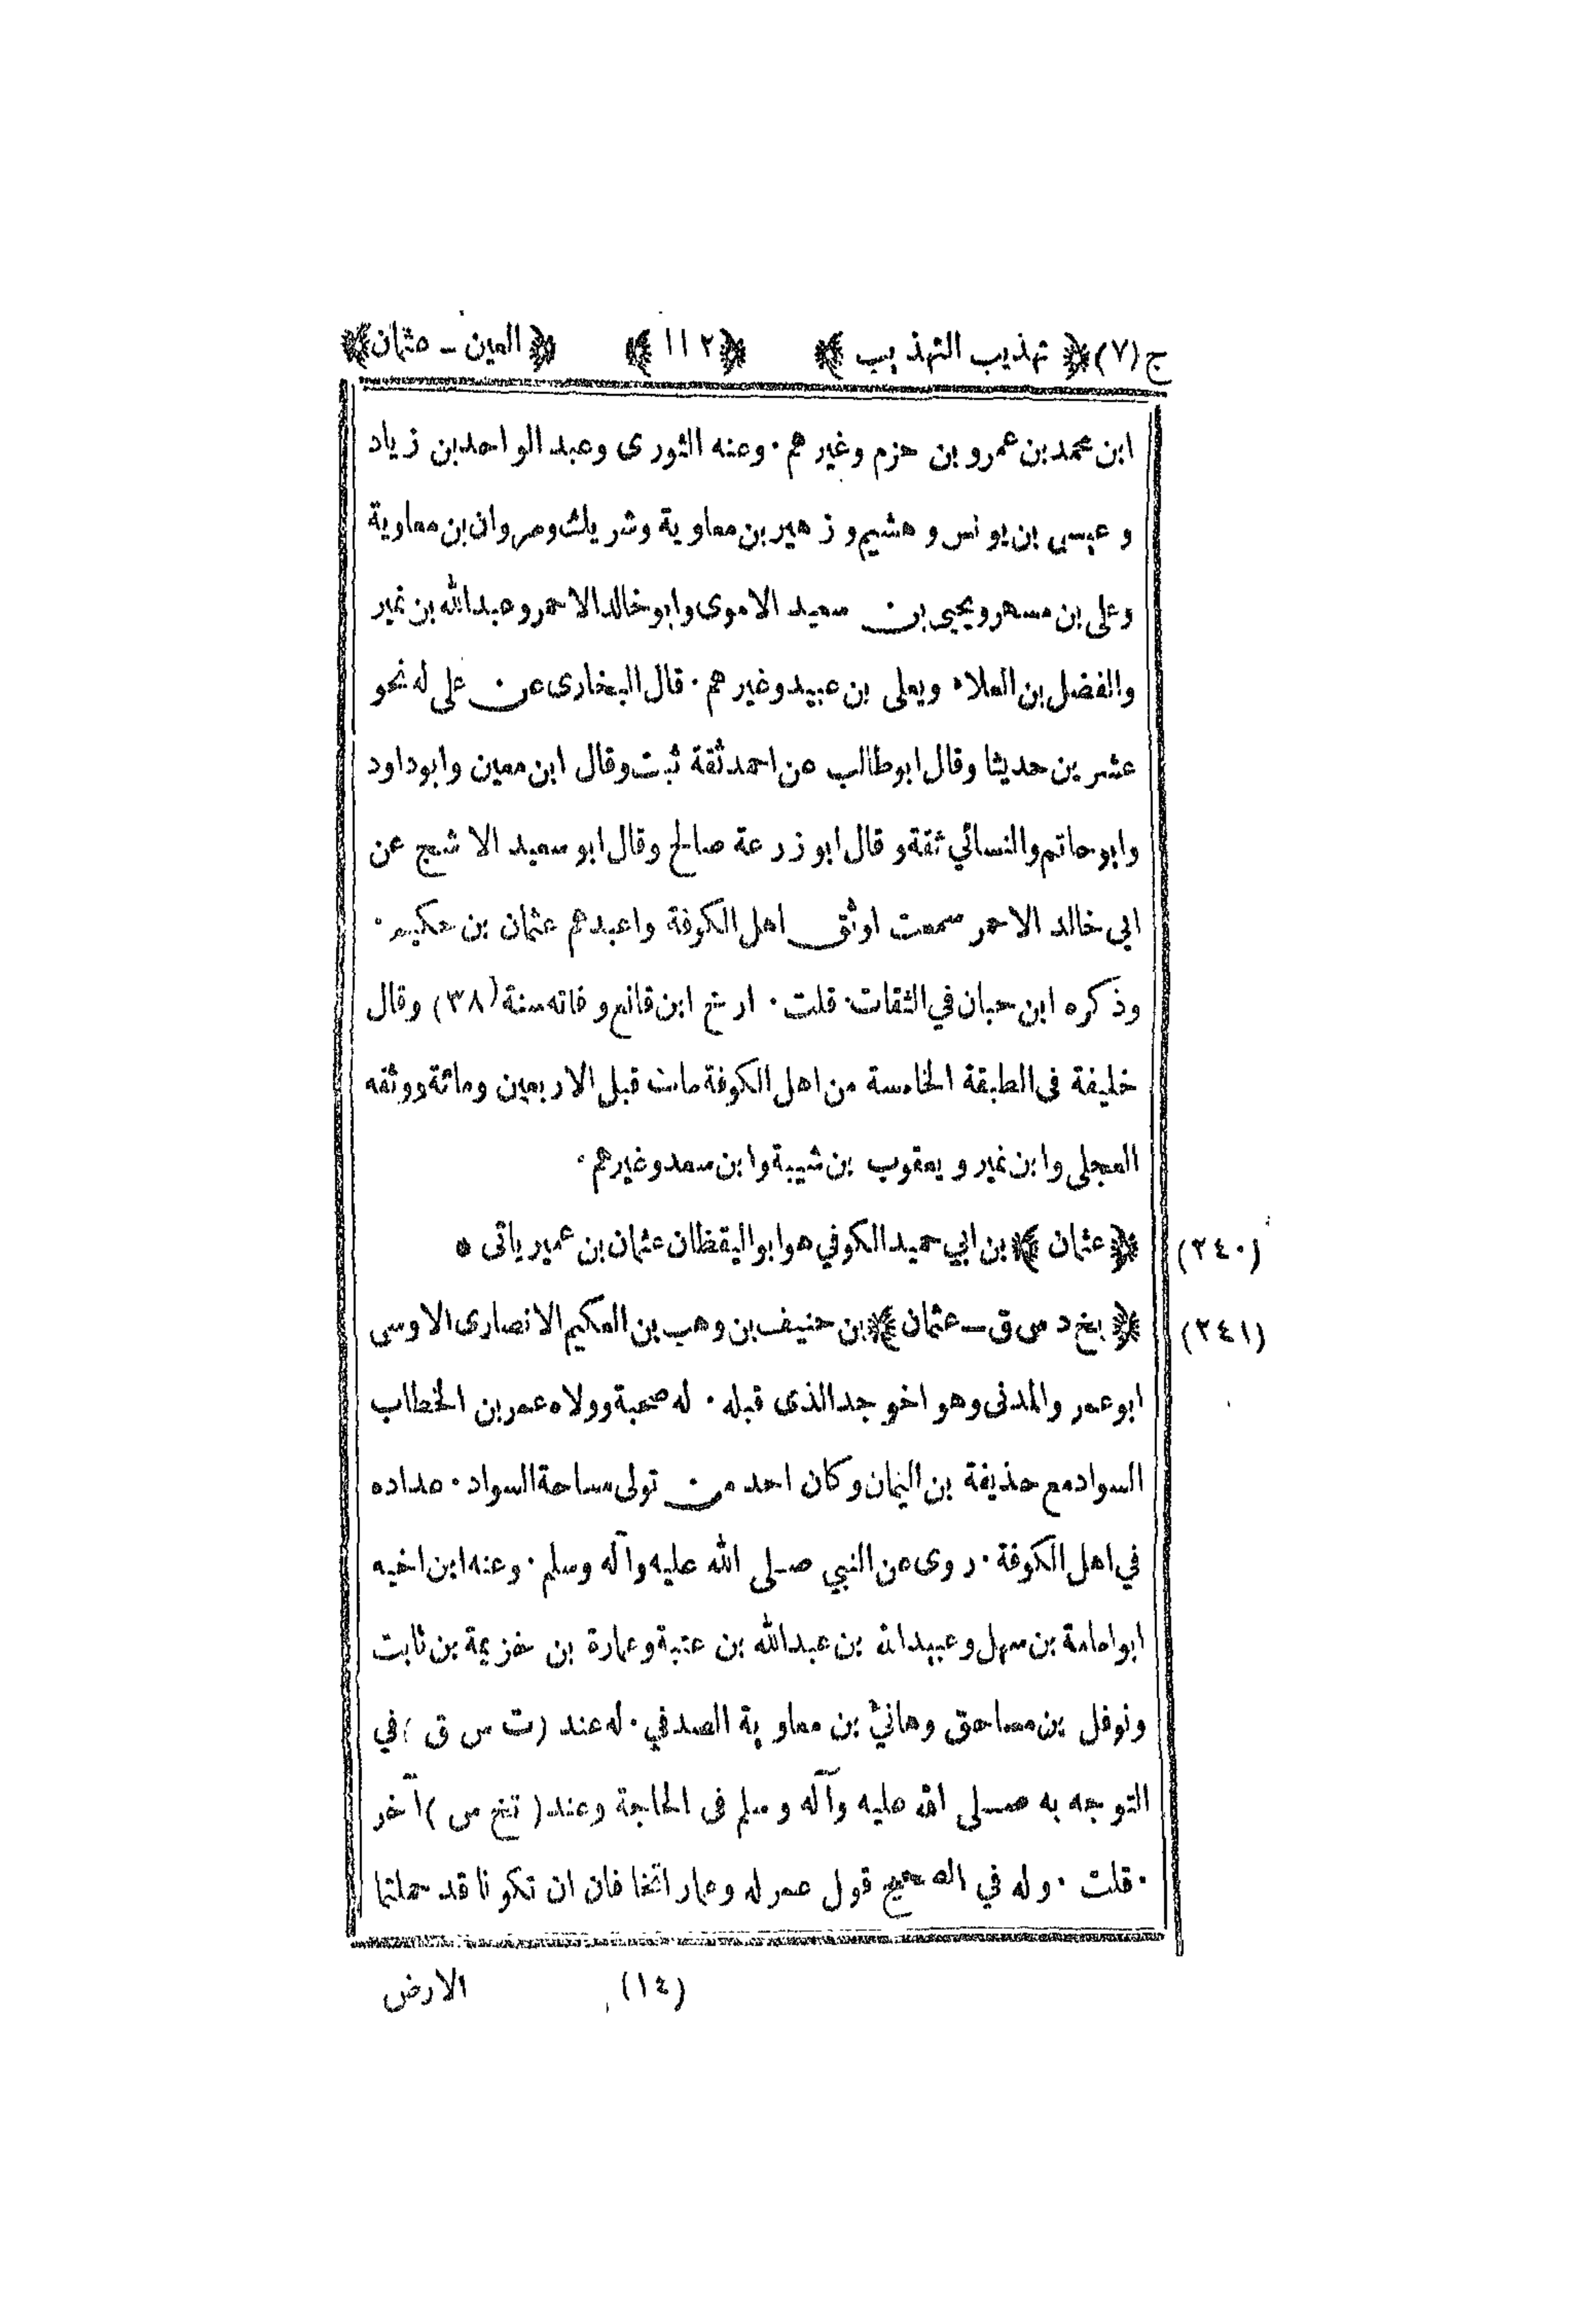 ج(٧) ﴿ تهذيب التهذيب ﴾ ﴿١١٢﴾ ﴿ العين ـ عثمان﴾
ابن محمد بن عمرو بن حزم وغيرهم · وعنه الثورى وعبد الواحد بن زياد
و عيسى بن يونس و هشيم و زهير بن معاوية وشريك ومروان بن معاوية
وعلى بن مسهر ويحيى بن سعيد الاموى وابو خالد الاحمر وعبد الله بن نمير
والفضل بن العلاء ويعلى بن عبيد وغيرهم · قال البخارى عن على له نحو
عشرين حديثا وقال ابو طالب عن احمد ثقة ثبت وقال ابن معين وابو داود
وابو حاتم والنسائي ثقة و قال ابو زرعة صالح وقال ابو سعيد الاشج عن
ابى خالد الاحمر سمعت اوثق اهل الكوفة واعبدهم عثمان بن حكيم ·
وذكره ابن حبان في الثقات · قلت · ارخ ابن قانع وفاته سنة (٣٨) وقال
خليفة فى الطبقة الخامسة من اهل الكوفة مات قبل الاربعين ومائة ووثقه
العجلى وابن نمير و يعقوب بن شيبة وابن سعد وغيرهم ·
(٢٤٠) ﴿ عثمان ﴾ بن ابي حميد الكوفي هو ابو اليقظان عثمان بن عمير ياتى *
(٢٤١) ﴿ بخ د س ق ـ عثمان ﴾ بن حنيف بن وهب بن العكيم الانصارى الاوسى
ابو عمر والمدنى وهو اخو جد الذى قبله · له صحبة وولاه عمر بن الخطاب
السواد مع حذيفة بن اليمان وكان احد من تولى مساحة السواد · عداده
في اهل الكوفة · روى عن النبي صلى الله عليه وآله وسلم · وعنه ابن اخيه
ابو امامة بن سهل وعبيد الله بن عبد الله بن عتبة وعمارة بن خزيمة بن ثابت
ونوفل بن مساحق وهانئ بن معاوية الصدفي · له عند (ت س ق) في
التوجه به صلى الله عليه وآله وسلم فى الحاجة وعند (تخ س) آخر
· قلت · وله في الصحيح قول عمر له وعمار اتخافان ان تكونا قد حملتما
(١٤) الارض